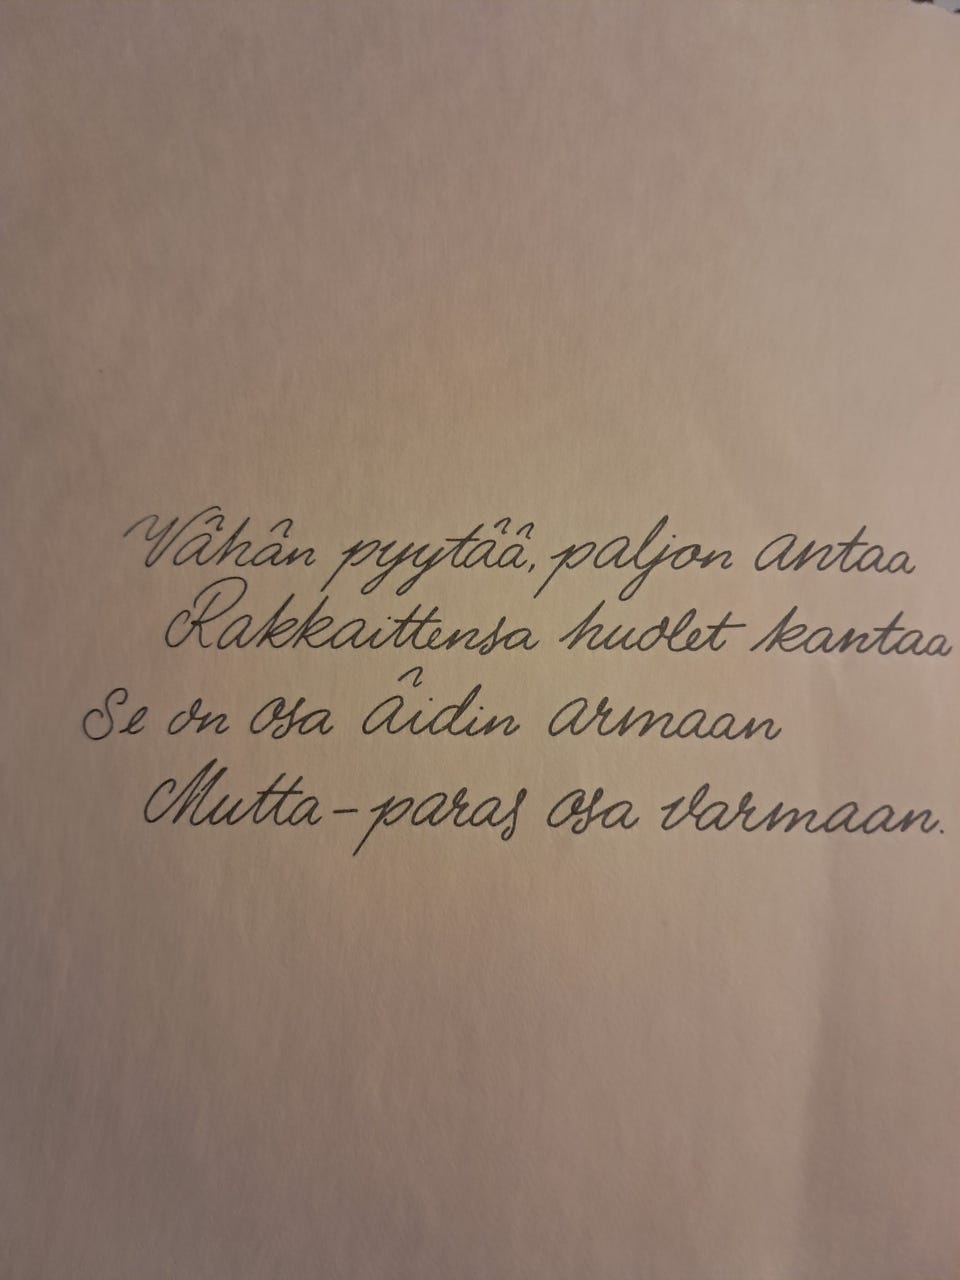 Vähän pyytää, paljon antaa
Rakkaittensa huolet kantaa
Se on osa äidin armaan
Mutta - paras osa varmaan.